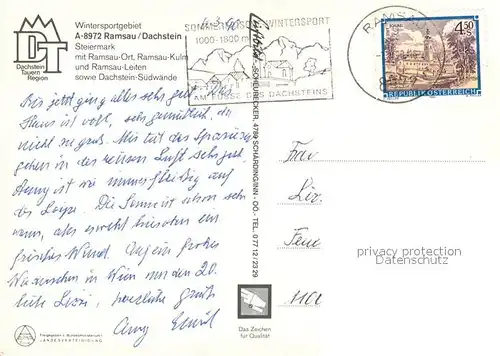 Wintersportgebiet
A-8972 Ramsau / Dachstein
Steiermark
mit Ramsau-Ort, Ramsau-Kulm
und Ramsau-Leiten
sowie Dachstein-Südwände
DT
Dachstein
Tauern
Region
4.3.90
SOMMERFRISCHE WINTERSPORT
1000-1800 m
AM FUSSE DES DACHSTEINS
RAMSAU
8972
4.50
REPUBLIK ÖSTERREICH
SCHÄRDING/INN - OÖ. - TEL. 07712/2329
Bis jetzt ging alles sehr gut. Das
Haus ist voll, sehr gemütlich, da
nicht so groß. Mir tut das Spazieren
gehen in der reinen Luft sehr gut.
Anny ist wie immer fleißig auf
der Loipe. Die Sonne ist schon sehr
warm, aber es weht bisweilen ein
frisches Wind. Auf ein frohes
Wiedersehen in Wien um den 20.
liebe Lissi, herzliche Grüße
Anny
Frau
privacy protection
www.oldthing.com
Das Zeichen
für Qualität
LANDESVERTEIDIGUNG